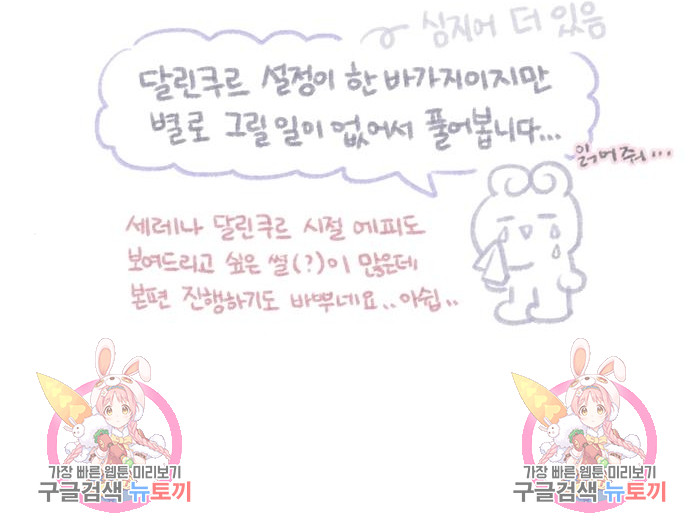 심지어 더 있음
달린쿠르 설정이 한 바가지이지만
별로 그릴 일이 없어서 풀어봅니다...
읽어줘...
세레나 달린쿠르 시절 에피도
보여드리고 싶은 썰(?)이 많은데
본편 진행하기도 바쁘네요..아쉽..
가장 빠른 웹툰 미리보기
구글검색 뉴토끼
가장 빠른 웹툰 미리보기
구글검색 뉴토끼